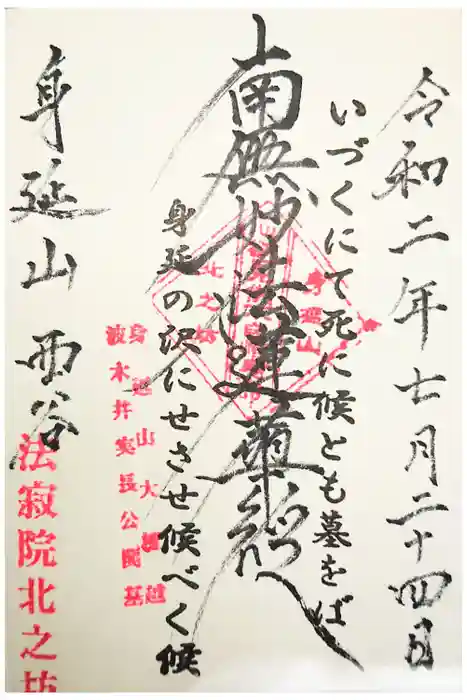 令和二年七月二十四日
いづくにて死に候とも墓をば
南無妙法蓮華経
身延の沢にせさせ候べく候
身延山
北之坊
身延山大檀越
波木井実長公開基
身延山 西谷
法寂院北之坊